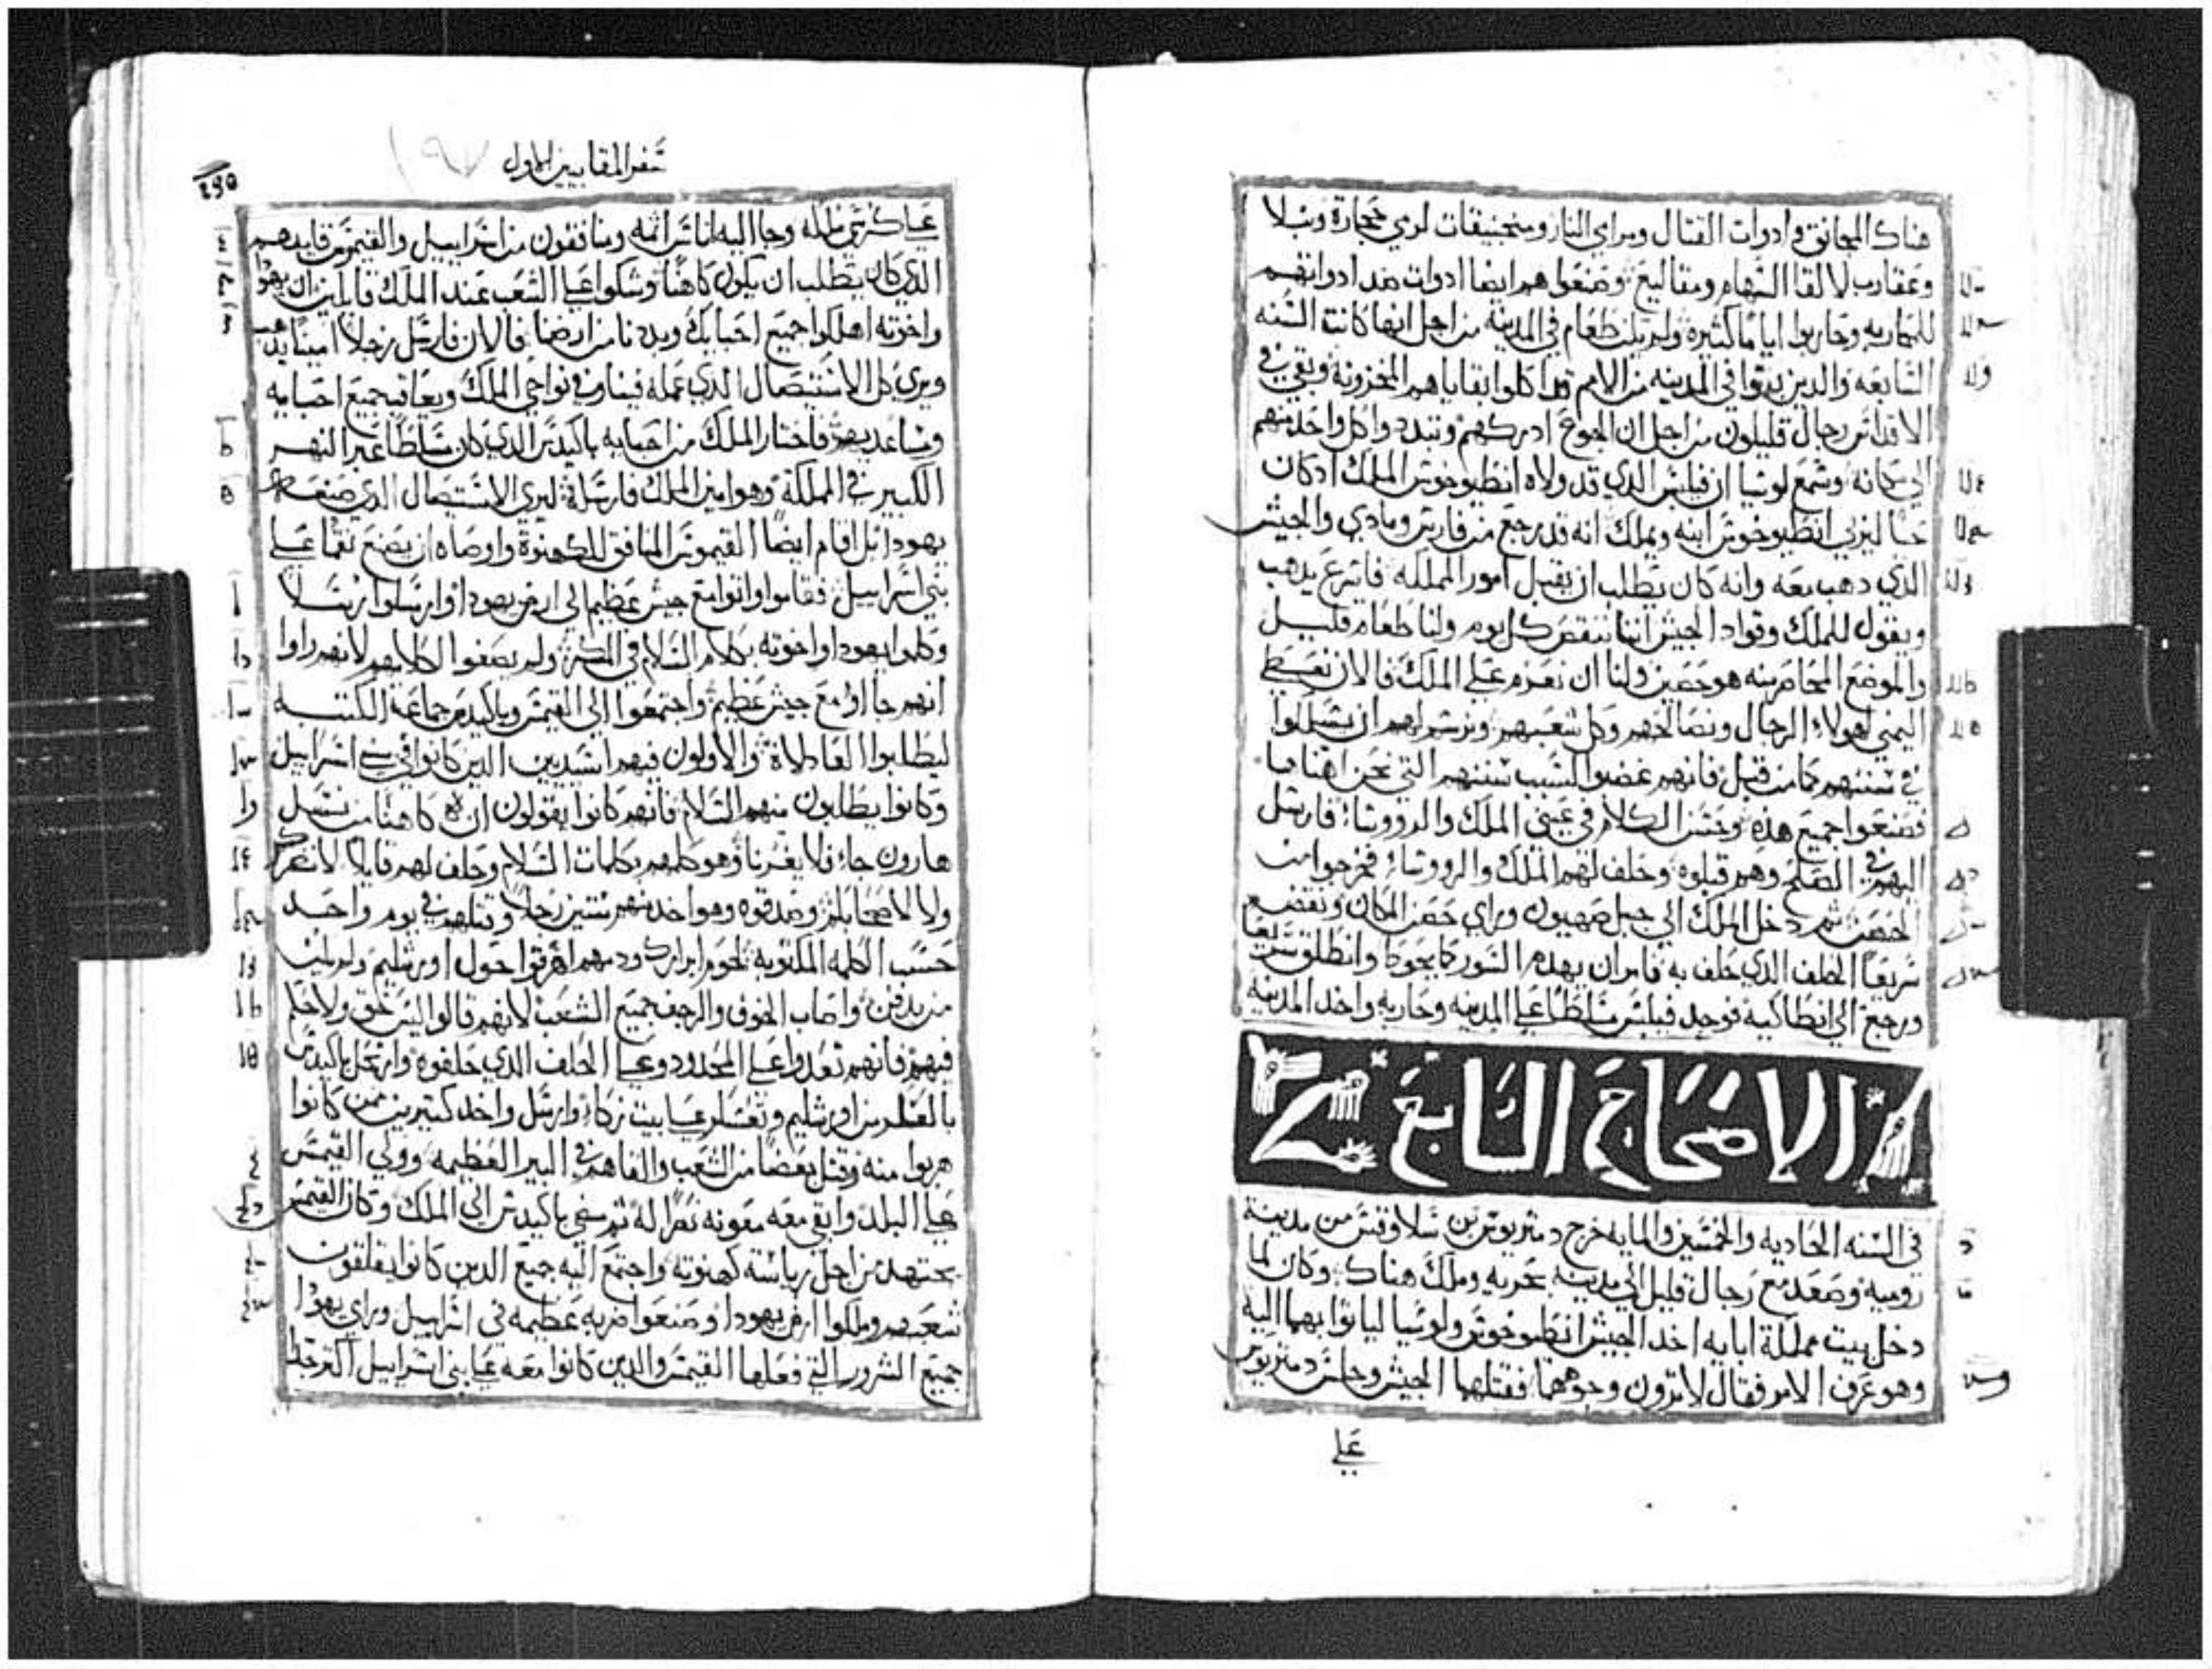 هناك المجانق وادوات القتال ومرامي النار ومنجنيقات لرمي حجارة ونبلا
وعقارب لالقا السهام ومقاليع وصنعوا هم ايضا ادوات ضد ادواتهم
للمحاربه وحاربوا اياما كثيرة ولم يكن طعام في المدينة من اجل انها كانت السنه
السابعه والدين بقوا في المدينه من الامم قد اكلوا بقاياهم المخزونة وبقي في
الاقداس رجال قليلون من اجل ان الجوع ادركهم وتبددوا كل واحد منهم
الي مكانه وسمع لوسيا ان فيلبس الدي قد ولاه انطيوخوس الملك اد كان
حيا ليربي انطيوخوس ابنه ويملك انه قد رجع من فارس ومادي والجيش
الدي دهب معه وانه كان يطلب ان يقبل امور المملكه فاسرع يدهب
ويقول للملك وقواد الجيش اننا ننقص كل يوم ولنا طعام قليل
والموضع المحاصرينه هو حصين ولنا ان نعزم علي الملك فالان نعطي
اليمني لهولاء الرجال ونصالحهم وكل شعبهم ونرسم لهم ان يسلكوا
في سننهم كما من قبل فانهم غضبوا لسبب سننهم التي نحن اهناها
فصنعوا جميع هده وحسن الكلام في عيني الملك والرووساء فارسل
اليهم في الصلح وهم قبلوه وحلف لهم الملك والرووساء فخرجوا من
الحصن ثم دخل الملك الي جبل صهيون وراي حصن المكان ونقض
سريعا الحلف الدي حلف به فامر ان يهدم السور كما يحوط وانطلق سريعا
ورجع الي انطاكيه فوجد فيلبس متسلطا علي المدينه وحاربه واخد المدينه
الاصحاح السابع
في السنه الحاديه والخمسين والمايه خرج دمتريوس بن سلاوقس من مدينة
رومية وصعد مع رجال قليل الي مدينه بحريه وملك هناك وكان لما
دخل بيت مملكة ابايه اخد الجيش انطيوخوس ولوسيا لياتوا بهما اليه
وهو عرف الامر فقال لا ترون وجوههما فقتلهما الجيش وجلس دمتريوس
علي
سفر المقابيين الاول
علي كرسي ملكه وجاا اليه اناس اثمه ومنافقون من اسراييل والقيموس قايدهم
الدي كان يطلب ان يكون كاهنا وشكوا علي الشعب عند الملك قايلين ان يهودا
واخوته اهلكوا جميع احبايك وبددنا من ارضنا فالان فارسل رجلا امينا يدهب
ويري كل الاستيصال الدي عمله فينا وفي نواحي الملك ويعاقب جميع احبايه
ومساعديهم فاختار الملك من احبايه باكيدس الدي كان متسلطا عبر النهر
الكبير في المملكة وهو امين الملك فارسله ليري الاستيصال الدي صنعه
يهودا بل اقام ايضا القيموس المنافق للكهنوة واوصاه ان يصنع نقما علي
بني اسراييل فقاموا واتوا مع جيش عظيم الي ارض يهودا وارسلوا رسلا
وكلموا يهودا واخوته بكلام السلام في المكر ولم يصغوا لكلامهم لانهم راوا
انهم جااوا مع جيش عظيم واجتمعوا الي القيمس وباكيدس جماعة الكتبه
ليطلبوا العادلاة والاولون فيهم اسيديين الدين كانوا في بني اسراييل
وكانوا يطلبون منهم السلام فانهم كانوا يقولون ان كاهنا من نسل
هارون جاء فلا يغرنا وهو كلمهم بكلمات السلام وحلف لهم قايلا لا نضركم
ولا لاصحابكم وصدقوه وهو اخد منهم ستين رجلا وقتلهم في يوم واحد
حسب الكلمه المكتوبه لحوم ابرارك ودمهم اهرقوا حول اورشليم ولم يكن
من يدفن واصاب الخوف والرجف جميع الشعب لانهم قالوا ليس حق ولا حكم
فيهم فانهم تعدوا علي المحدود وعلي الحلف الدي حلفوه وارتحل باكيدس
بالعسكر من اورشليم وعسكر علي بيت زكاء وارسل واخد كتيرين ممن كانوا
هربوا منه وقتل بعضا من الشعب والقاهم في البير العظيمه وولي القيمس
علي البلد وابقي معه معونه نصرا له ثم مضي باكيدس الي الملك وكان القيمس
يجتهد من اجل رياسة كهنوته واجتمع اليه جميع الدين كانوا يقلقون
شعبهم وملكوا ارض يهودا وصنعوا ضربه عظيمه في اسراييل وراي يهودا
جميع الشرور التي فعلها القيمس والدين كانوا معه علي بني اسراييل اكتر جدا